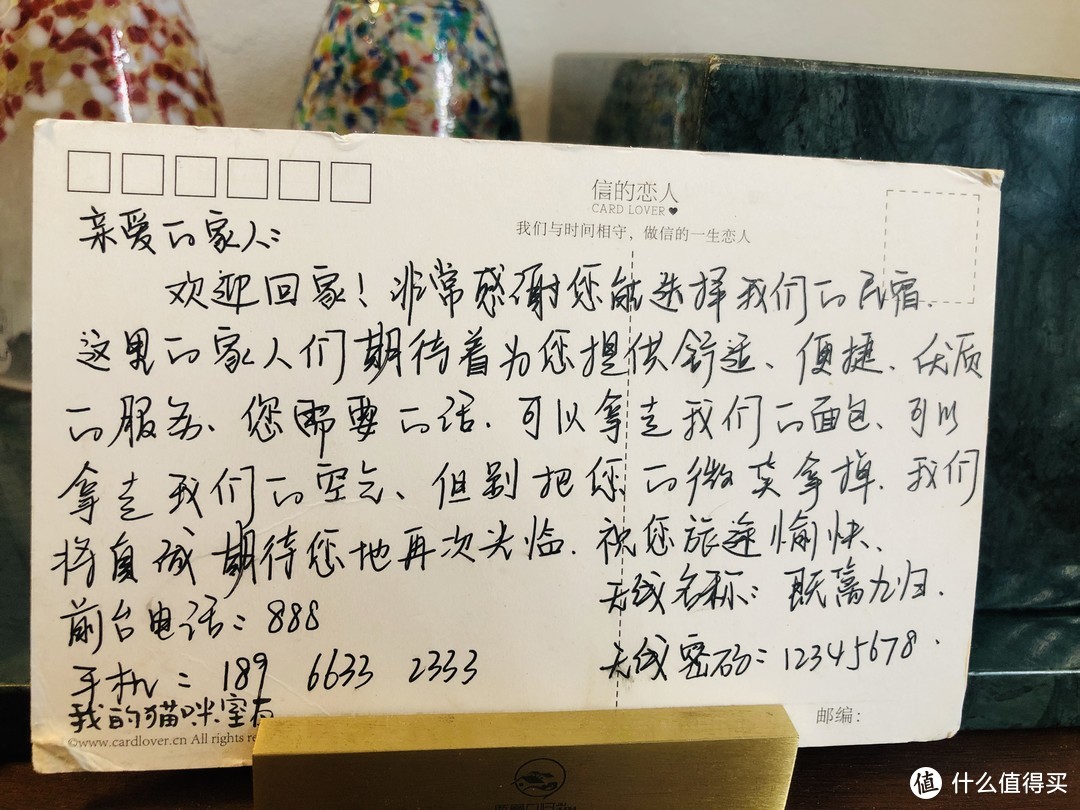 信的恋人
CARD LOVER
我们与时间相守，做信的一生恋人
亲爱的家人：
欢迎回家！非常感谢您能选择我们的民宿.
这里的家人们期待着为您提供舒适、便捷、优质
的服务、您需要的话.可以拿走我们的面包、可以
拿走我们的空气、但别把您的微笑拿掉.我们
将真诚期待您地再次光临.祝您旅途愉快、
前台电话：888
无线名称：既篱九归.
手机：189 6633 2333
无线密码：12345678.
我的猫咪室有
©www.cardlover.cn All rights re
邮编：
值 什么值得买